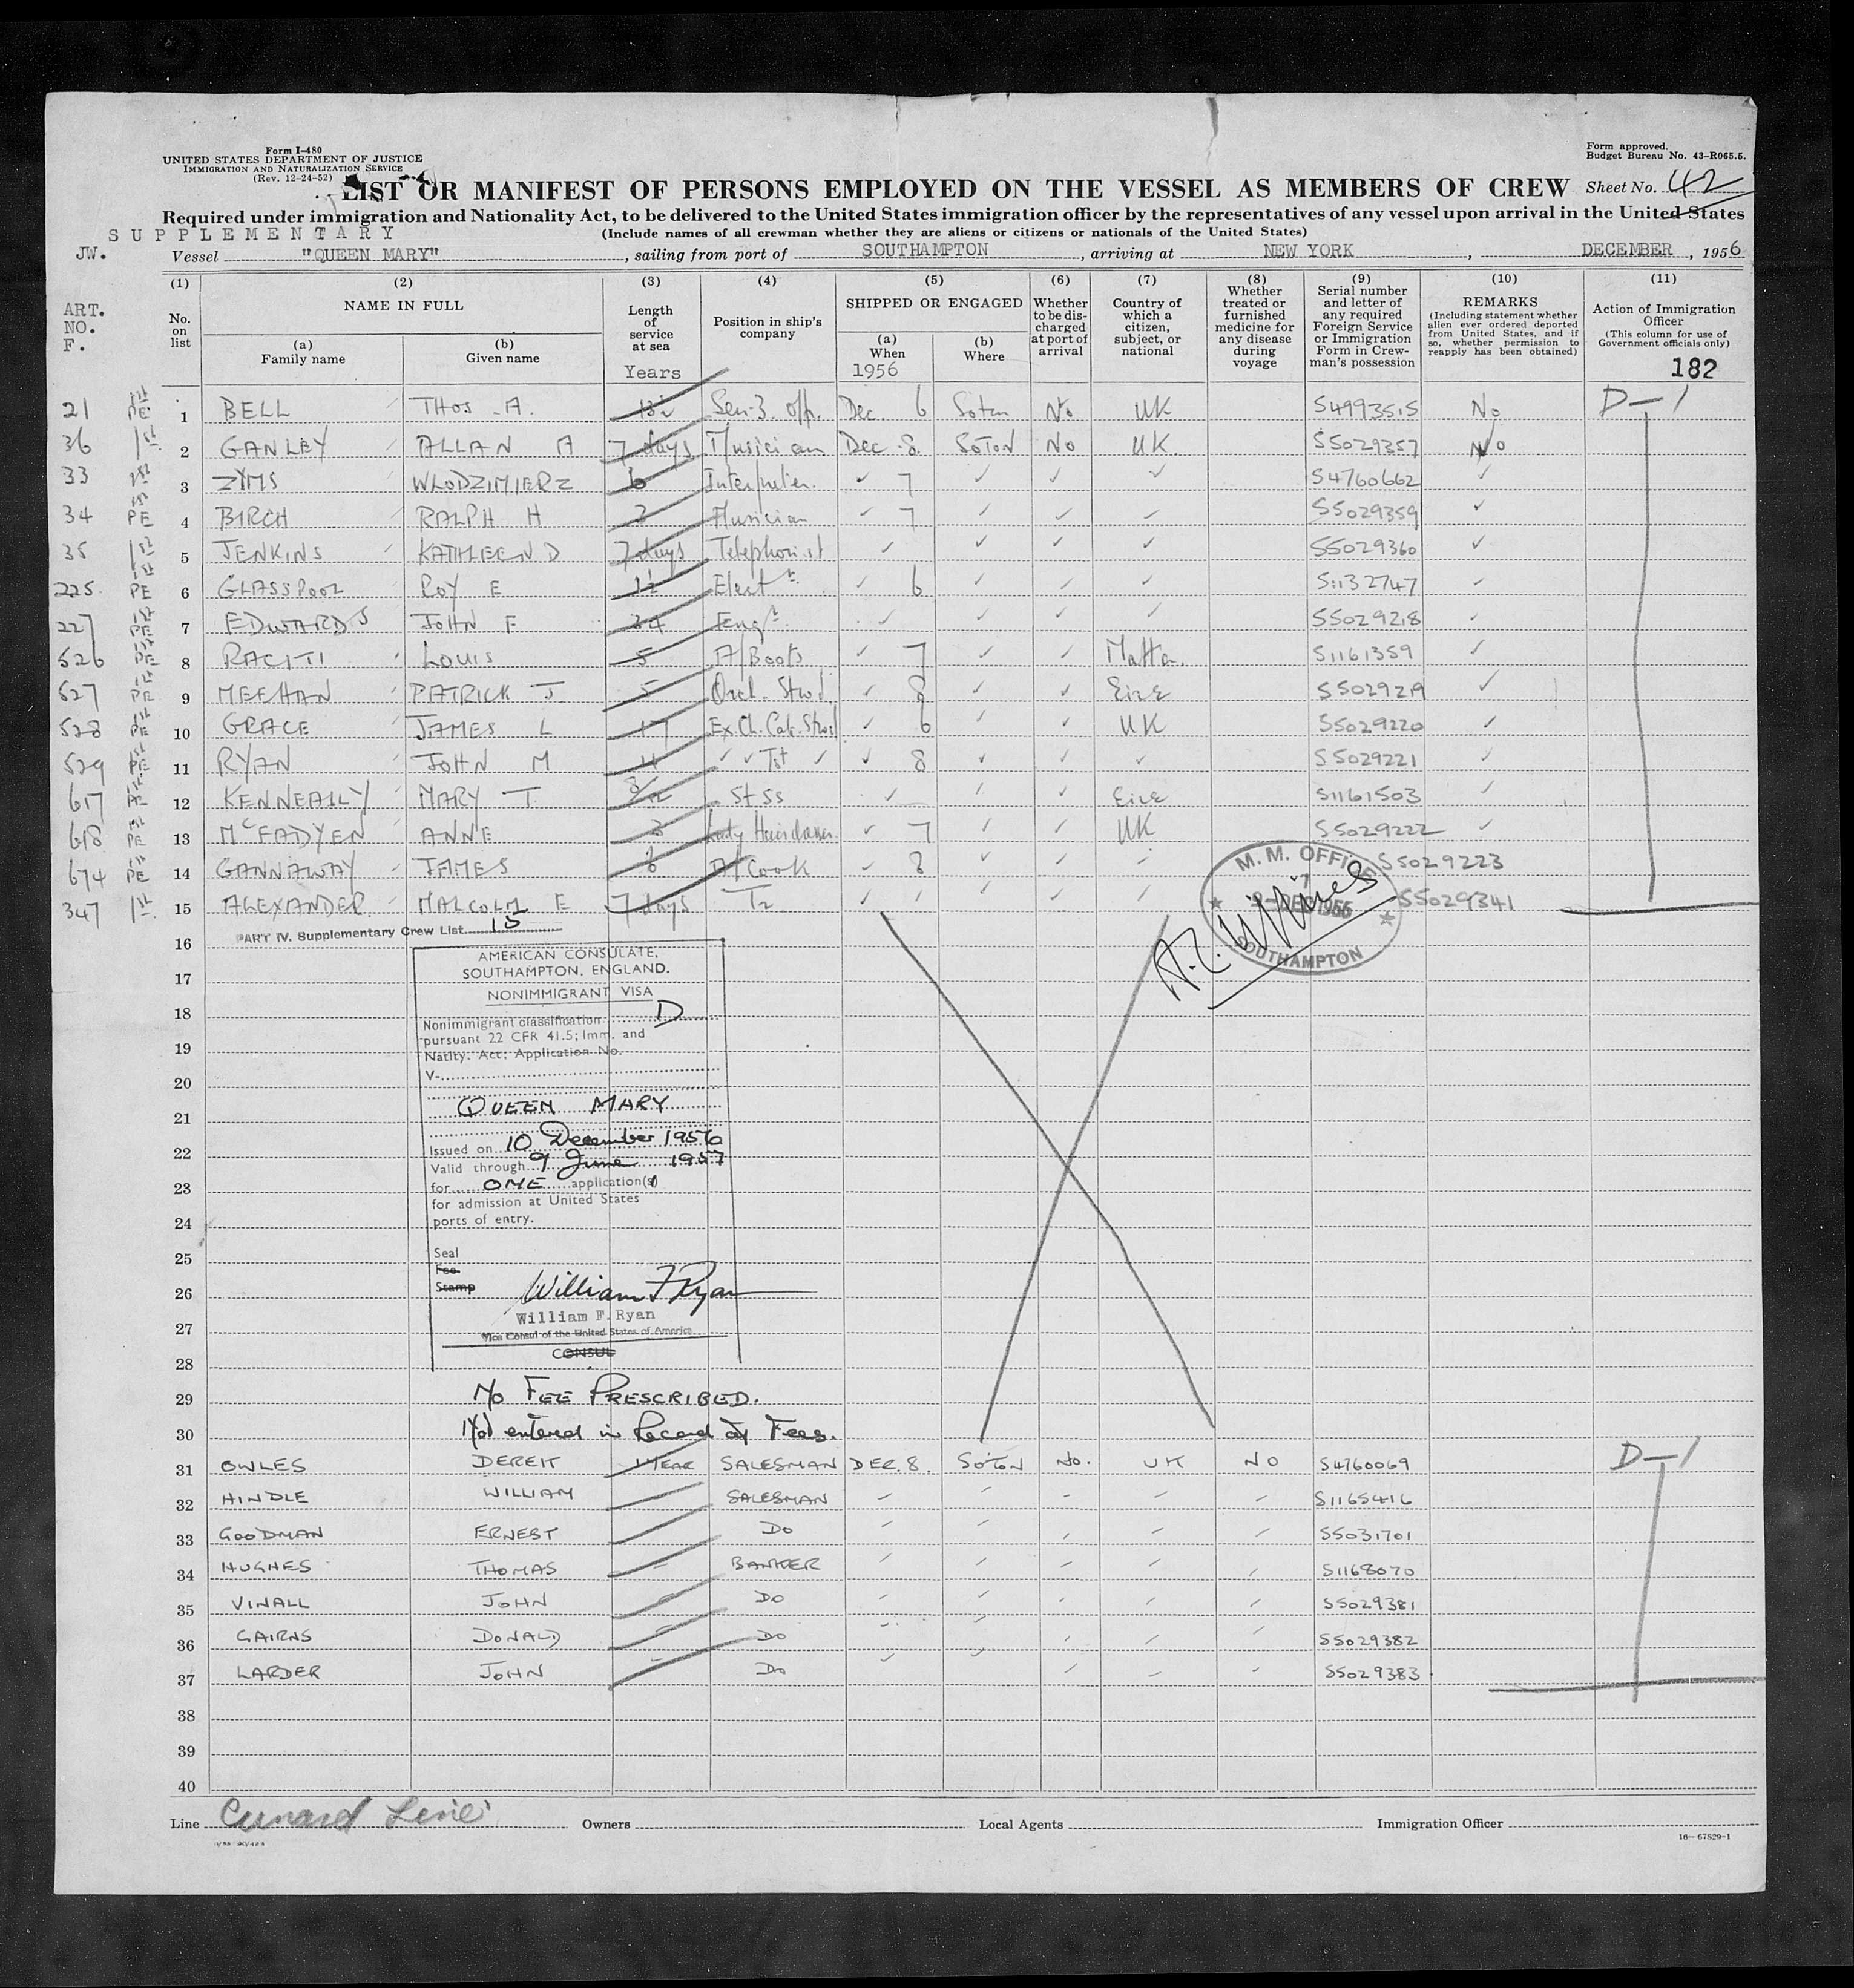 Form I-480
UNITED STATES DEPARTMENT OF JUSTICE
IMMIGRATION AND NATURALIZATION SERVICE
(Rev. 12-24-52)
Form approved.
Budget Bureau No. 43-R065.5.
LIST OR MANIFEST OF PERSONS EMPLOYED ON THE VESSEL AS MEMBERS OF CREW Sheet No. 42
Required under immigration and Nationality Act, to be delivered to the United States immigration officer by the representatives of any vessel upon arrival in the United States
SUPPLEMENTARY
(Include names of all crewman whether they are aliens or citizens or nationals of the United States)
JW. Vessel "QUEEN MARY", sailing from port of SOUTHAMPTON, arriving at NEW YORK, DECEMBER, 1956
ART. NO. F.
(1) No. on list
(2) NAME IN FULL
(a) Family name
(b) Given name
(3) Length of service at sea
Years
(4) Position in ship's company
(5) SHIPPED OR ENGAGED
(a) When
1956
(b) Where
(6) Whether to be discharged at port of arrival
(7) Country of which a citizen, subject, or national
(8) Whether treated or furnished medicine for any disease during voyage
(9) Serial number and letter of any required Foreign Service or Immigration Form in Crewman's possession
(10) REMARKS
(Including statement whether alien ever ordered deported from United States, and if so, whether permission to reapply has been obtained)
(11) Action of Immigration Officer
(This column for use of Government officials only)
182
21 1st PE 1 BELL THOS. A. Dec. 6 Soton No UK S4993515 No D-1
36 1st 2 GANLEY ALLAN A 7 days Musician Dec. 8 SOTON No UK. S5029357 No
33 1st 3 ZYMS WLODZIMIERZ 6 Interpreter. ✓ 7 ✓ ✓ ✓ S4760662 ✓
34 1st PE 4 BIRCH RALPH H 3 Musician ✓ 7 ✓ ✓ ✓ S5029359 ✓
35 1st 5 JENKINS KATHLEEN D 7 days Telephonist ✓ ✓ ✓ ✓ S5029360 ✓
225 1st PE 6 GLASSPOOL ROY E 12 Elect r. ✓ 6 ✓ ✓ ✓ S1132747 ✓
227 1st PE 7 EDWARDS JOHN F 34 Eng r. ✓ ✓ ✓ ✓ S5029218 ✓
526 1st PE 8 RACITI LOUIS 5 A/Boots ✓ 7 ✓ ✓ Malta. S1161359 ✓
527 1st PE 9 MEEHAN PATRICK J 5 ✓ 8 ✓ ✓ Eire S5029219 ✓
528 1st PE 10 GRACE JAMES L 17 Ex. Ch. Cab. Stwd ✓ 6 ✓ ✓ UK S5029220 ✓
529 1st PE 11 RYAN JOHN M ✓ ✓ Tst ✓ ✓ 8 ✓ ✓ ✓ S5029221 ✓
617 1st PE 12 KENNEALLY MARY T 8/12 Stss ✓ ✓ ✓ Eire S1161503 ✓
618 1st PE 13 McFADYEN ANNE 3 Lady Hairdresser ✓ 7 ✓ ✓ UK S5029222 ✓
674 1st PE 14 GANNAWAY JAMES 6 A/Cook ✓ 8 ✓ ✓ ✓ S5029223
347 1st 15 ALEXANDER MALCOLM E 7 days ✓ ✓ ✓ ✓ ✓ S5029341
PART IV. Supplementary Crew List 15
M. M. OFFICE
DEC 1956
SOUTHAMPTON
16
AMERICAN CONSULATE.
SOUTHAMPTON, ENGLAND.
17
NONIMMIGRANT VISA
18
Nonimmigrant classification D
pursuant 22 CFR 41.5; Imm. and
19
Natlty. Act; Application No.
V-
20
QUEEN MARY
21
Issued on 10 December 1956
22
Valid through 9 June 1957
for ONE application(s)
23
for admission at United States
24
ports of entry.
25
Seal
Fee
Stamp
26
William F Ryan
William F. Ryan
27
Vice Consul of the United States of America
CONSUL
28
29 No FEE PRESCRIBED.
30 Not entered in Record of Fees.
31 OWLES DEREK 1 YEAR SALESMAN DEC. 8. SOTON No. UK NO S4760069 D-1
32 HINDLE WILLIAM SALESMAN S1165416
33 GOODMAN ERNEST DO S5031701
34 HUGHES THOMAS BANKER S1168070
35 VINALL JOHN DO S5029381
36 CAIRNS DONALD DO S5029382
37 LARDER JOHN DO S5029383
38
39
40
Line Cunard Line Owners Local Agents Immigration Officer
16—67829-1